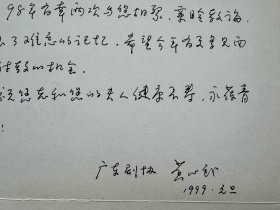 98年有幸两次与您相聚，聆听教诲
了难忘的记忆，希望今年有更多见面
请教的机会。
祝您老和您的夫人健康长寿，永葆青
！
广东剧协
1999.元旦